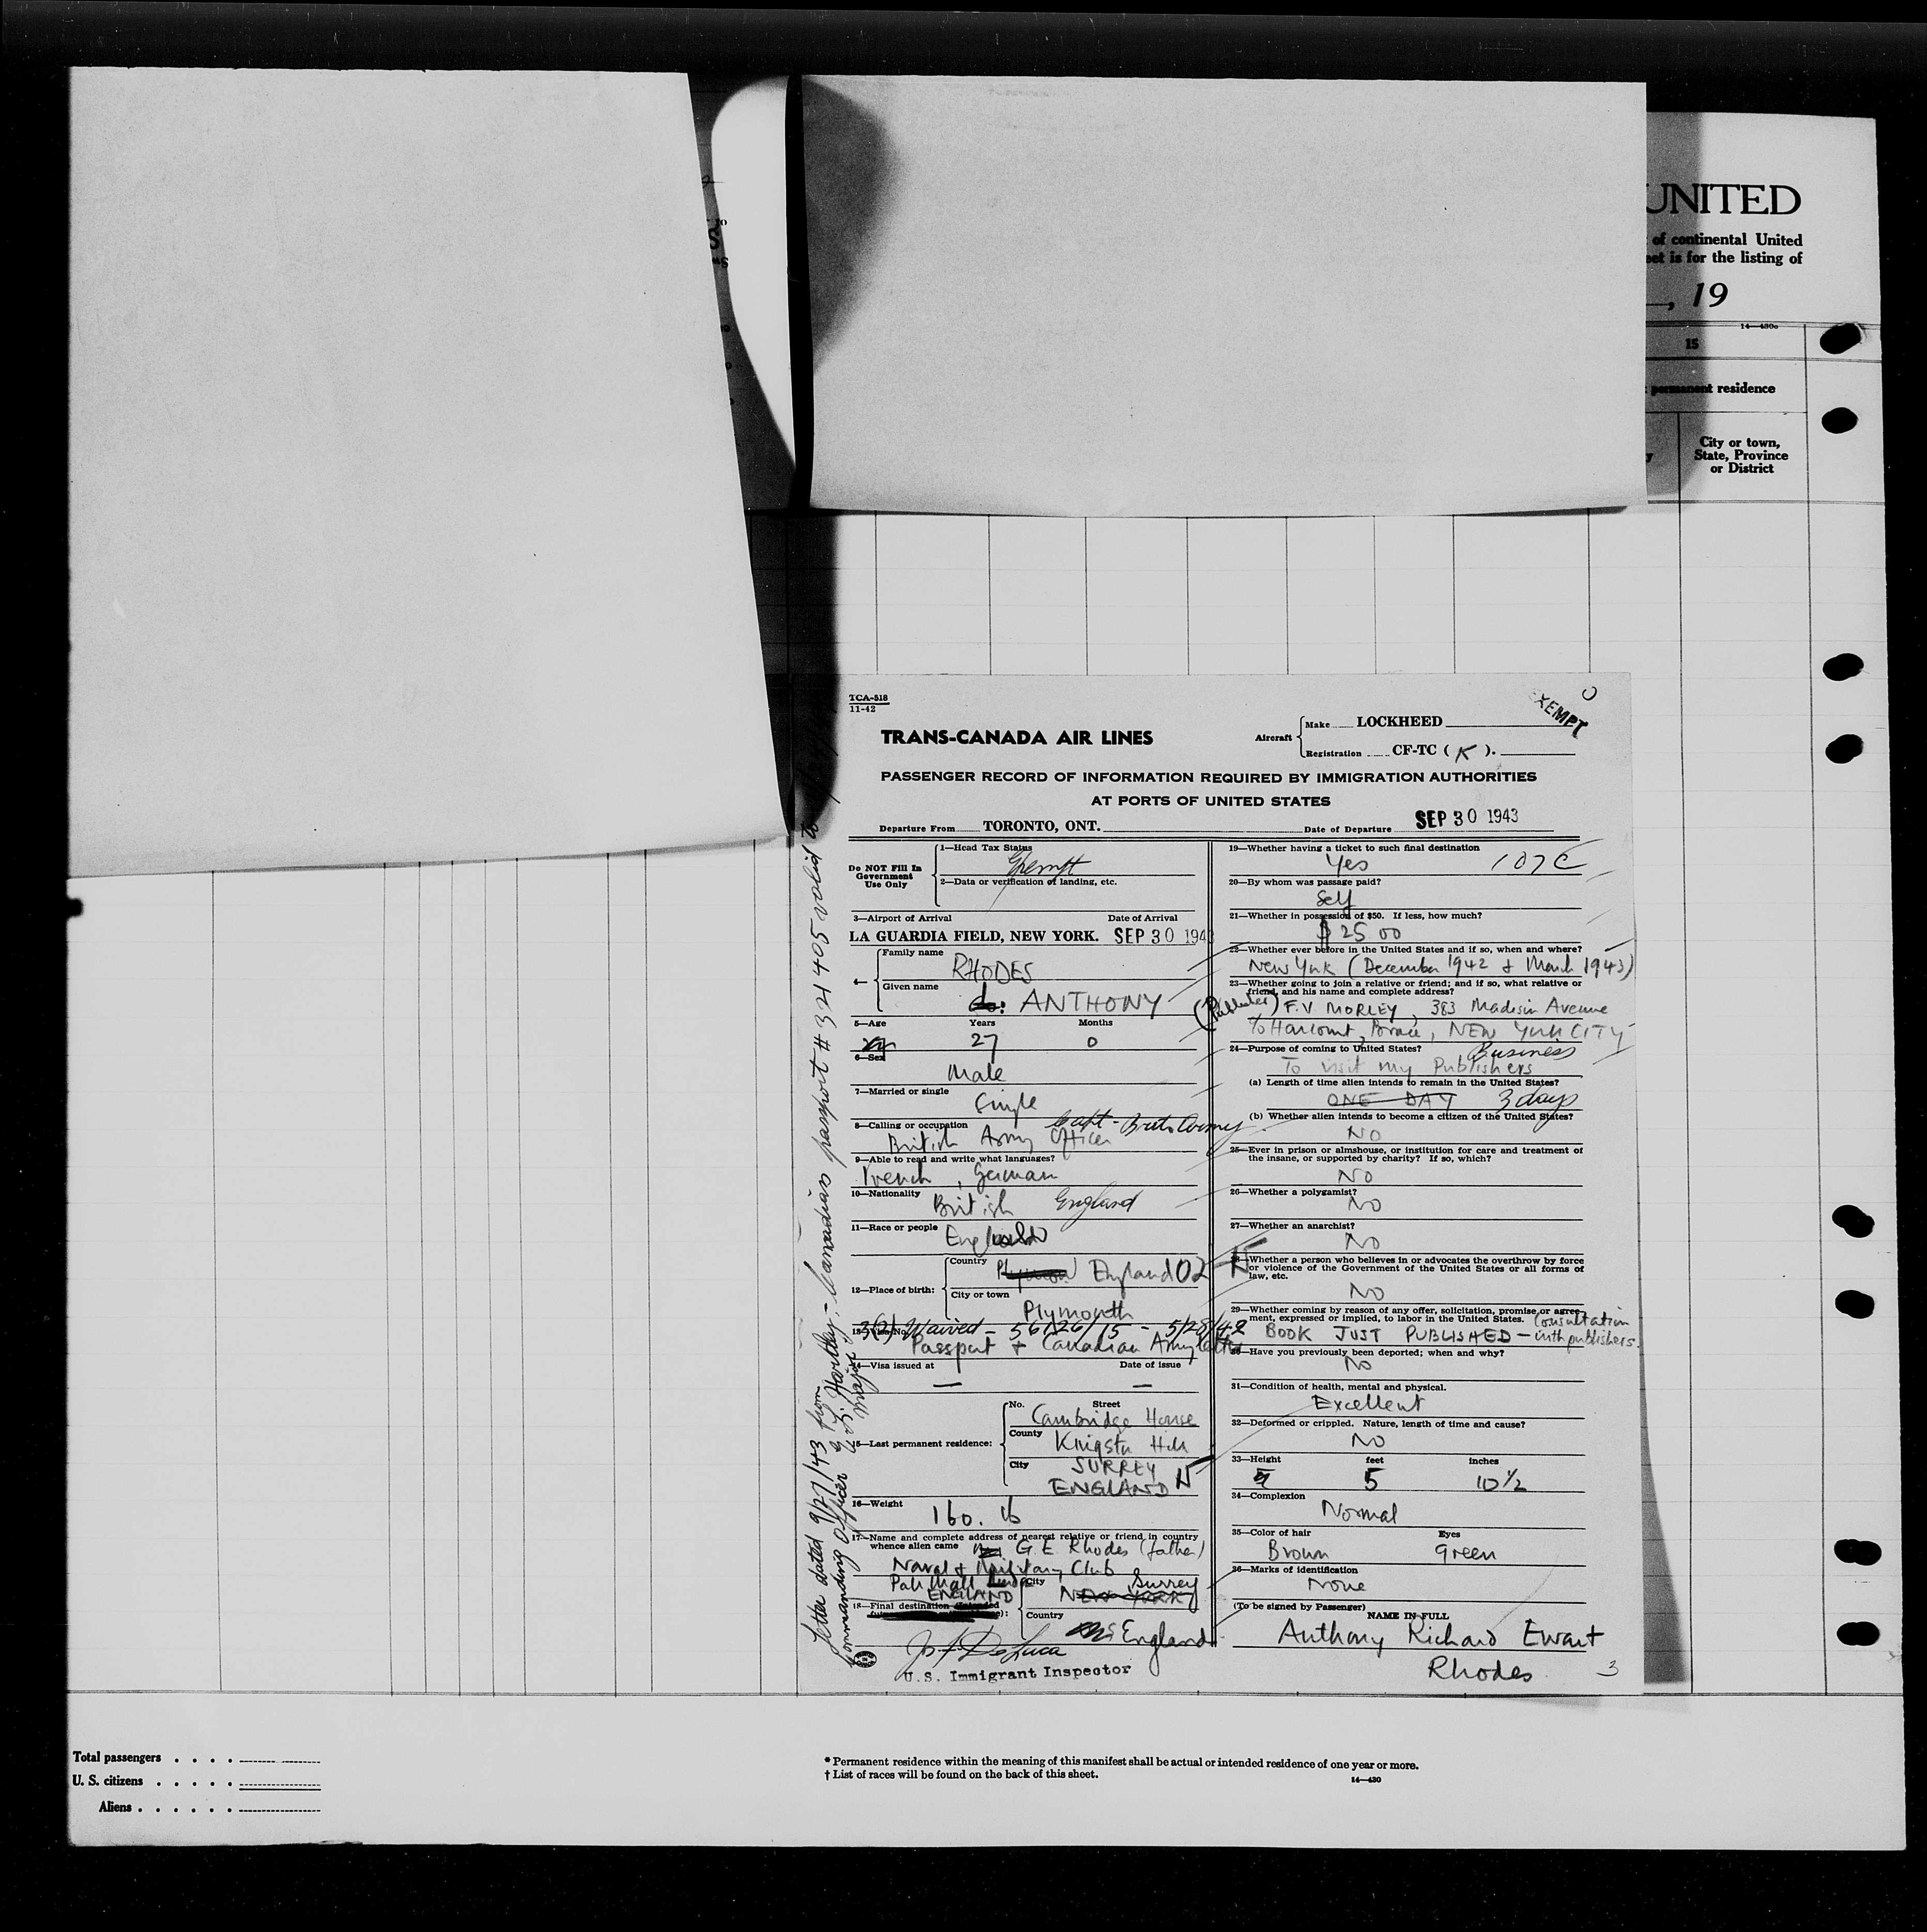 UNITED
of continental United
is for the listing of
, 19
14—430c
15
permanent residence
City or town,
State, Province
or District
TCA-518
11-42
EXEMPT
TRANS-CANADA AIR LINES
Aircraft
Make LOCKHEED
Registration CF-TC ( K ).
PASSENGER RECORD OF INFORMATION REQUIRED BY IMMIGRATION AUTHORITIES
AT PORTS OF UNITED STATES
Departure From TORONTO, ONT. Date of Departure SEP 30 1943
Do NOT Fill In
Government
Use Only
1—Head Tax Status
Exempt
2—Data or verification of landing, etc.
3—Airport of Arrival Date of Arrival
LA GUARDIA FIELD, NEW YORK. SEP 30 1943
4— Family name
RHODES
Given name
ANTHONY
5—Age Years Months
27 0
6—Sex
Male
7—Married or single
Single
8—Calling or occupation Capt - Brit. Army
British Army Officer
9—Able to read and write what languages?
French, German
10—Nationality
British England
11—Race or people
English
12—Place of birth:
Country
England 02
City or town
Plymouth
13—Visa No.
3(2) Waived - 56126/15 - 5/28/42
Passport + Canadian Army letter
14—Visa issued at Date of issue
— —
15—Last permanent residence:
No. Street
Cambridge House
County
Kingston Hill
City
SURREY
ENGLAND
16—Weight
160. lb
17—Name and complete address of nearest relative or friend in country
whence alien came G E Rhodes (father)
Naval + Military Club
Pall Mall
ENGLAND
18—Final destination
City Surrey
NEW YORK
Country
England
Jos F DeLuca
U.S. Immigrant Inspector
19—Whether having a ticket to such final destination
Yes 107C
20—By whom was passage paid?
Self
21—Whether in possession of $50. If less, how much?
$ 25 00
22—Whether ever before in the United States and if so, when and where?
New York (December 1942 & March 1943)
23—Whether going to join a relative or friend; and if so, what relative or
friend, and his name and complete address?
(Publisher) F.V. MORLEY, 383 Madison Avenue
c/o Harcourt, Brace, NEW YORK CITY
24—Purpose of coming to United States? Business
To visit my Publishers
(a) Length of time alien intends to remain in the United States?
ONE DAY 3 days
(b) Whether alien intends to become a citizen of the United States?
NO
25—Ever in prison or almshouse, or institution for care and treatment of
the insane, or supported by charity? If so, which?
NO
26—Whether a polygamist?
NO
27—Whether an anarchist?
NO
28—Whether a person who believes in or advocates the overthrow by force
or violence of the Government of the United States or all forms of
law, etc.
NO
29—Whether coming by reason of any offer, solicitation, promise or agree-
ment, expressed or implied, to labor in the United States. (Consultation
BOOK JUST PUBLISHED — with publishers.
30—Have you previously been deported; when and why?
No
31—Condition of health, mental and physical.
Excellent
32—Deformed or crippled. Nature, length of time and cause?
NO
33—Height feet inches
5 10 1/2
34—Complexion
Normal
35—Color of hair Eyes
Brown Green
36—Marks of identification
None
(To be signed by Passenger)
NAME IN FULL
Anthony Richard Ewart
Rhodes
3
Letter dated 9/27/43 from
Commanding Officer
Major
Canadian passport # 321405 valid to
Total passengers . . . .
U. S. citizens . . . . .
Aliens . . . . . .
* Permanent residence within the meaning of this manifest shall be actual or intended residence of one year or more.
† List of races will be found on the back of this sheet.
14—430